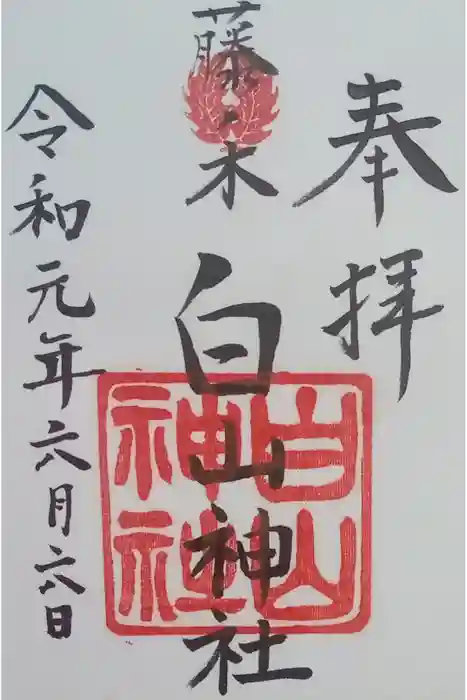 奉拝
藤之木
白山神社
白山神社
令和元年六月六日